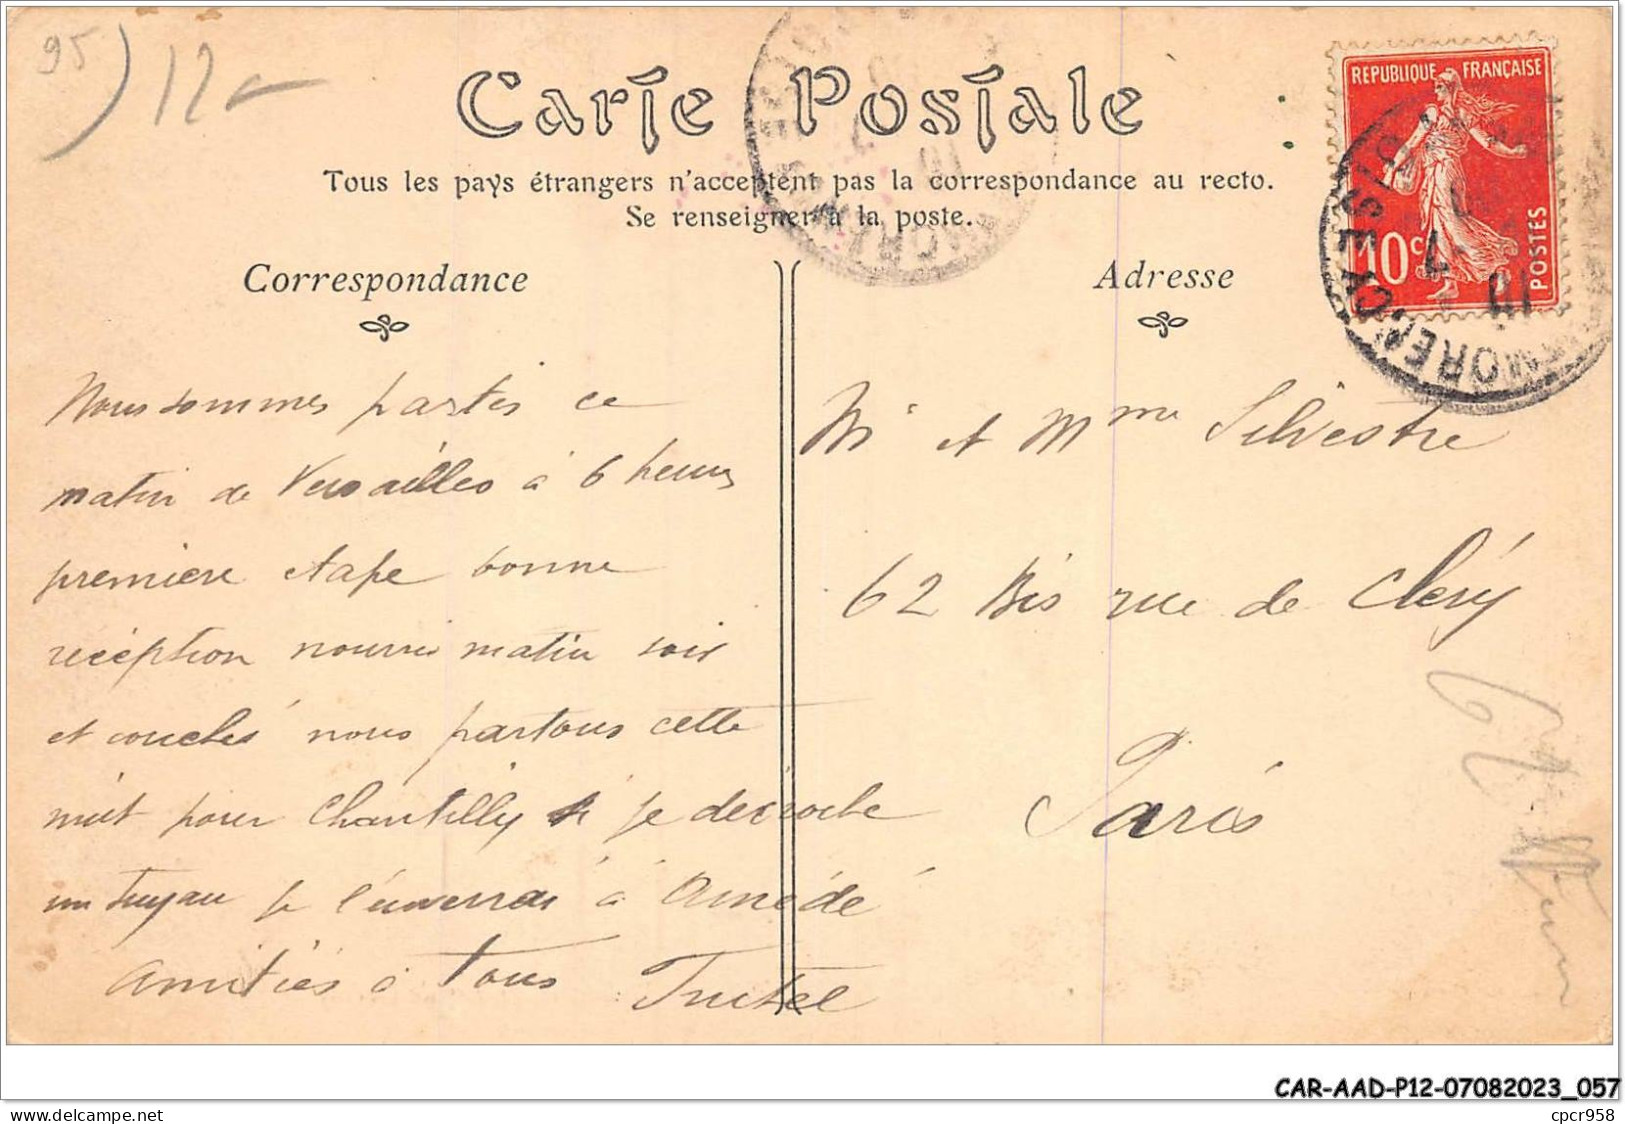 95) 12
Carte Postale
Tous les pays étrangers n'acceptent pas la correspondance au recto.
Se renseigner à la poste.
RÉPUBLIQUE FRANÇAISE
10c
POSTES
Correspondance
Nous sommes partis ce
matin de Versailles à 6 heures
première étape bonne
réception nourri matin soir
et couchés nous partons cette
nuit pour Chantilly si je décroche
un tuyau je l'enverrai à Amédé
amitiés à tous
Adresse
Mr et Mme Silvestre
62 Bis rue de Cléry
Paris
CAR-AAD-P12-07082023_057
cpcr958